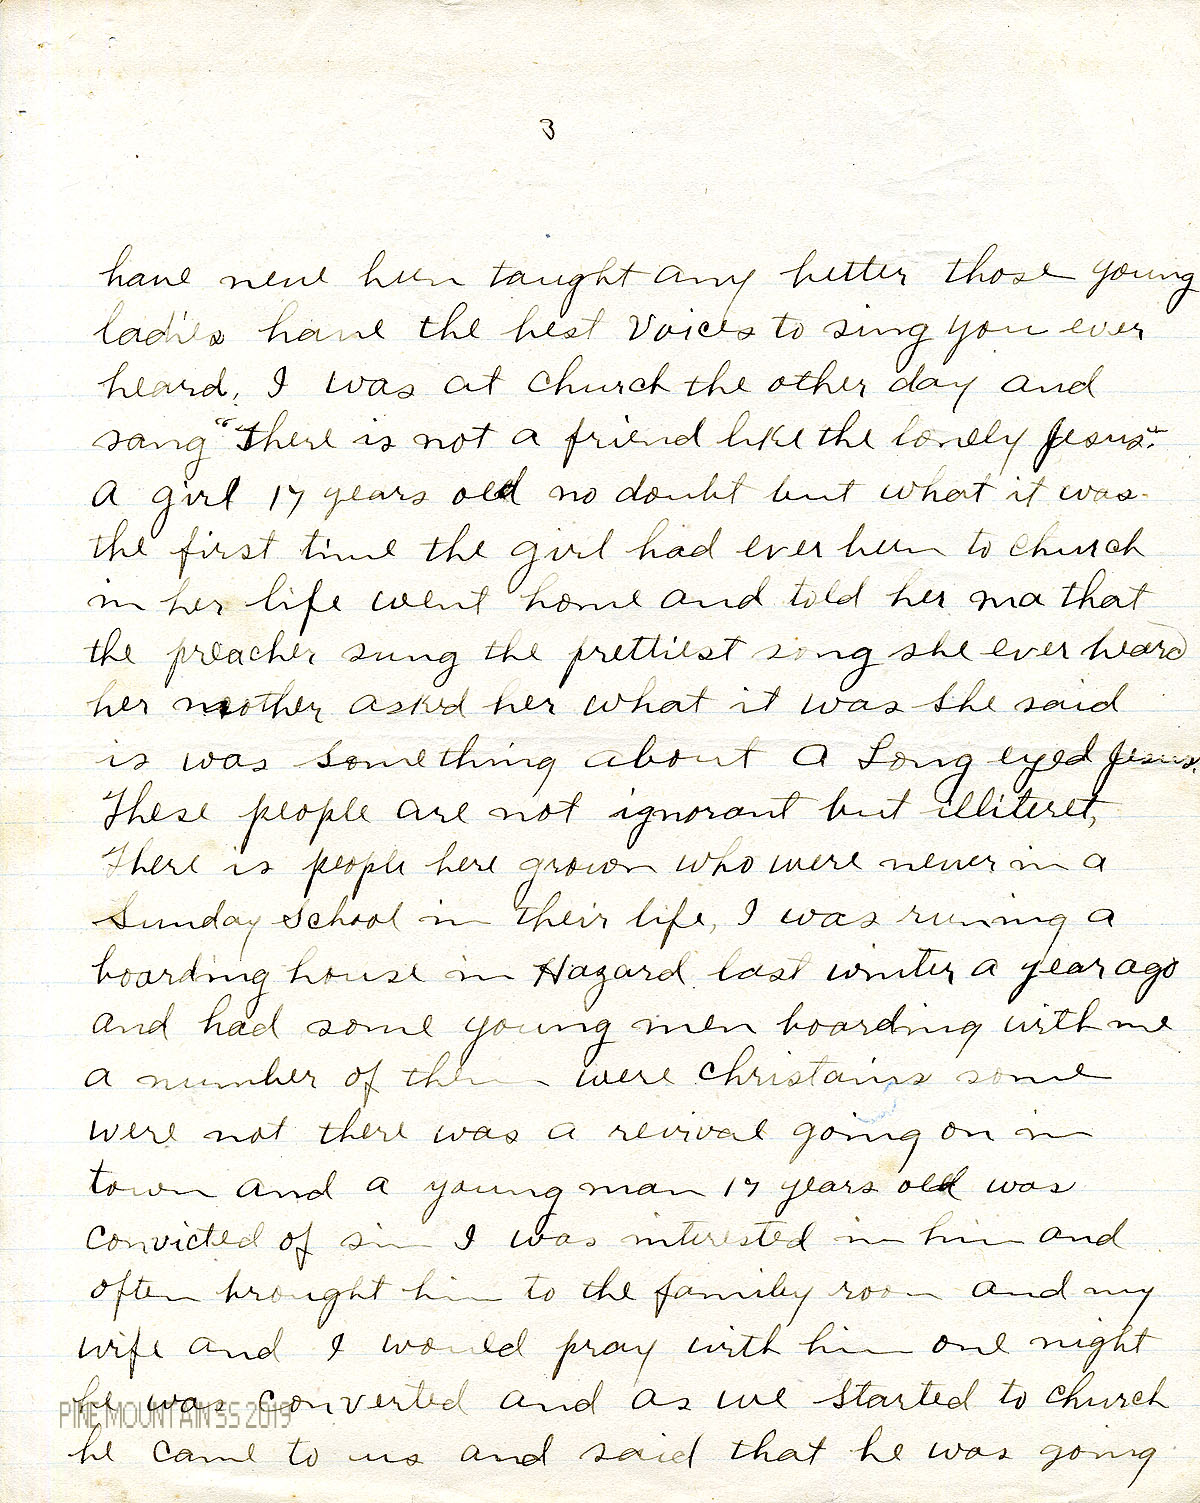 3
have neve been taught any better those young
ladies have the best Voices to sing you ever
heard, I was at church the other day and
sang "There is not a friend like the lonely Jesus".
a girl 17 years old no doubt but what it was
the first time the girl had ever been to church
in her life went home and told her ma that
the preacher sung the prettiest song she ever heard
her mother asked her what it was She said
is was Something about a Long eyed Jesus.
These people are not ignorant but illiteret,
There is people here grown who were never in a
Sunday School in their life, I was runing a
boarding house in Hazard last winter a year ago
and had some young men boarding with me
a number of them were Christains some
were not there was a revival going on in
town and a young man 17 years old was
Convicted of sin I was interested in him and
often brought him to the family room and my
wife and I would pray with him one night
he was Converted and as we Started to Church
PINE MOUNTAIN SS 2019
he came to us and said that he was going